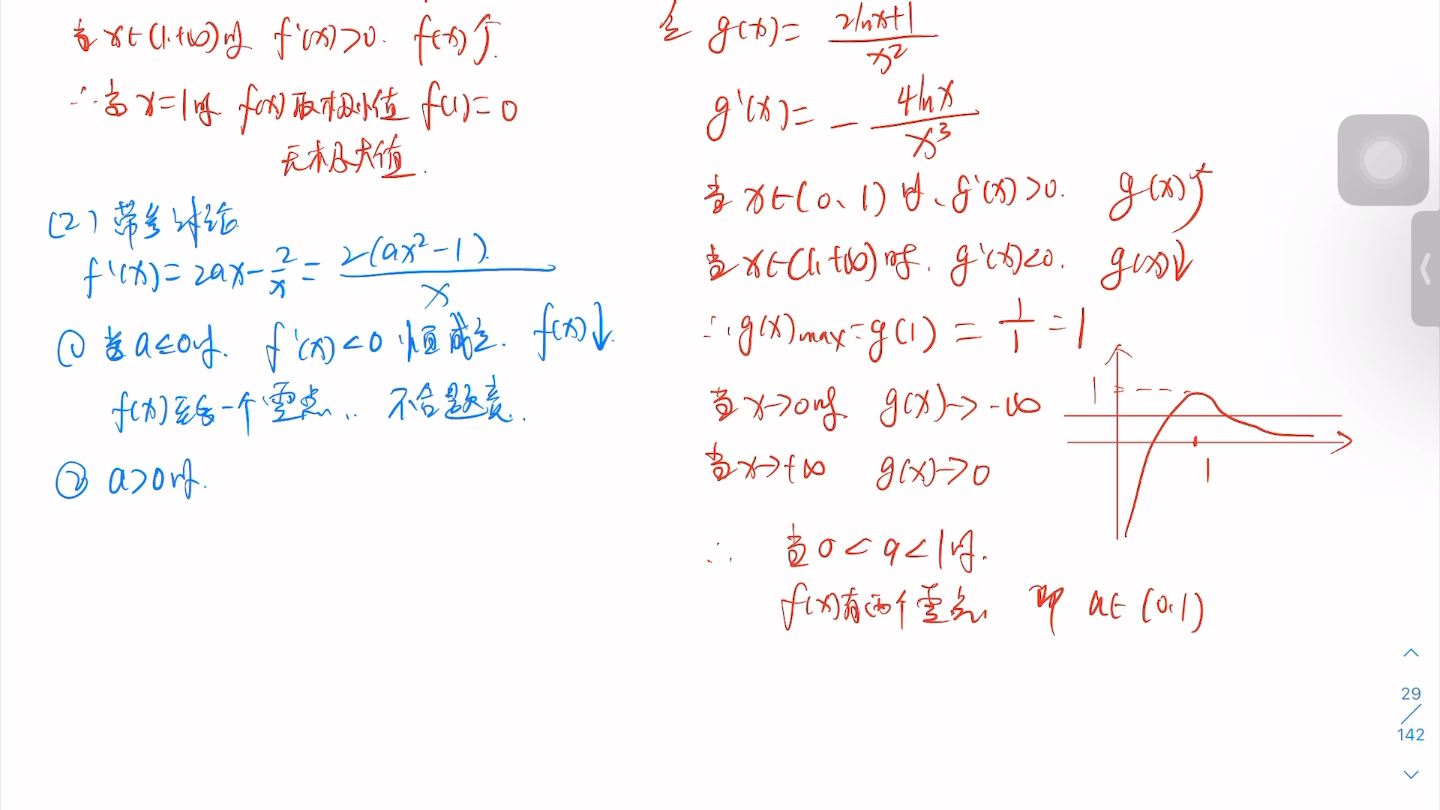 当x∈(1,+∞)时 f'(x)>0. f(x)↑
∴当x=1时. f(x)取极小值 f(1)=0
无极大值.
(2) 带参讨论
f'(x)=2ax-\frac{2}{x}=\frac{2(ax²-1)}{x}
① 当a≤0时. f'(x)<0 恒成立. f(x)↓.
f(x)至多一个零点.. 不合题意.
② a>0时.
令 g(x)=\frac{2lnx+1}{x²}
g'(x)=-\frac{4lnx}{x³}
当x∈(0、1)时、g'(x)>0. g(x)↑
当x∈(1,+∞)时. g'(x)<0. g(x)↓
∴g(x)max=g(1)=\frac{1}{1}=1
当x→0时. g(x)→-∞
当x→+∞ g(x)→0
1
1
∴ 当0<a<1时.
f(x)有两个零点 即 a∈(0,1)
29
142